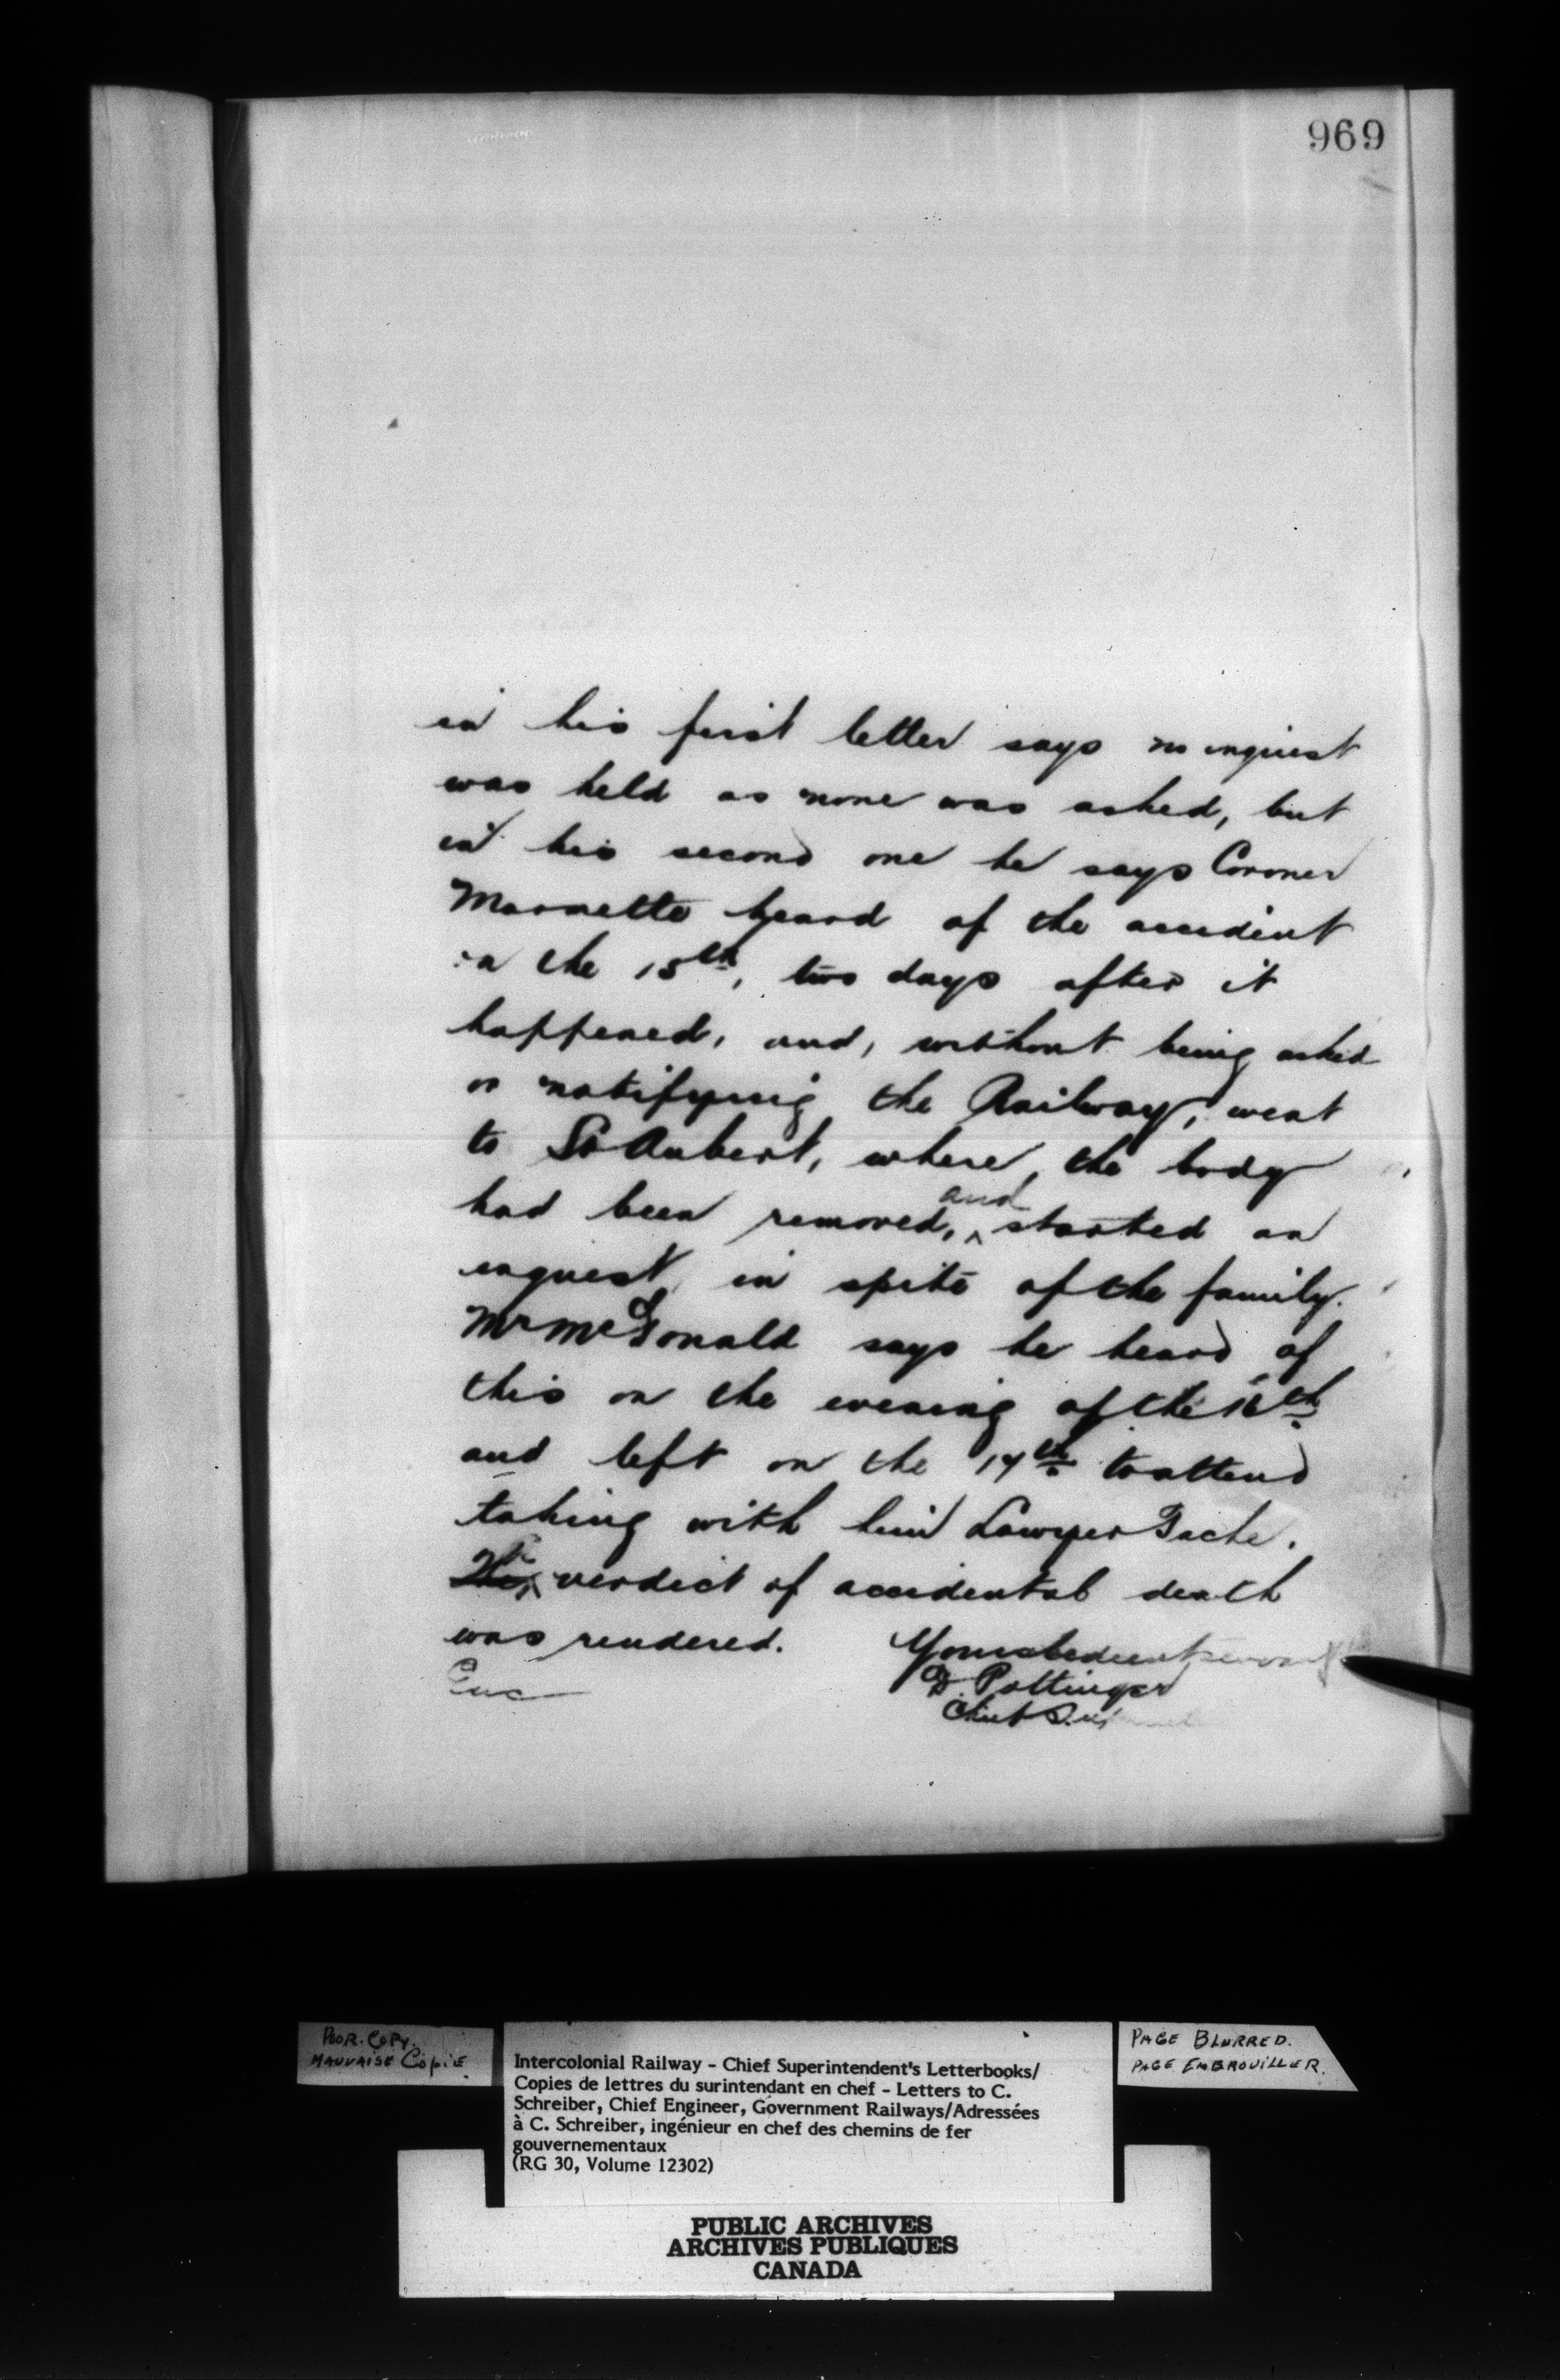 969
in his first letter says no inquest
was held as none was asked, but
in his second one he says Coroner
Marmette heard of the accident
on the 15th, two days after it
happened, and, without being asked
or notifying the Railway, went
to St Aubert, where the body
had been removed, and started an
inquest in spite of the family.
Mr McDonald says he heard of
this on the evening of the 16th
and left on the 17th to attend
taking with him Lawyer Tache.
verdict of accidental death
was rendered.
Yours obedient servant
Enc
D. Pottinger
Chief
POOR. COPY.
MAUVAISE COPIE
Intercolonial Railway - Chief Superintendent's Letterbooks/
Copies de lettres du surintendant en chef - Letters to C.
Schreiber, Chief Engineer, Government Railways/Adressées
à C. Schreiber, ingénieur en chef des chemins de fer
gouvernementaux
(RG 30, Volume 12302)
PAGE BLURRED.
PAGE EMBROUILLER.
PUBLIC ARCHIVES
ARCHIVES PUBLIQUES
CANADA